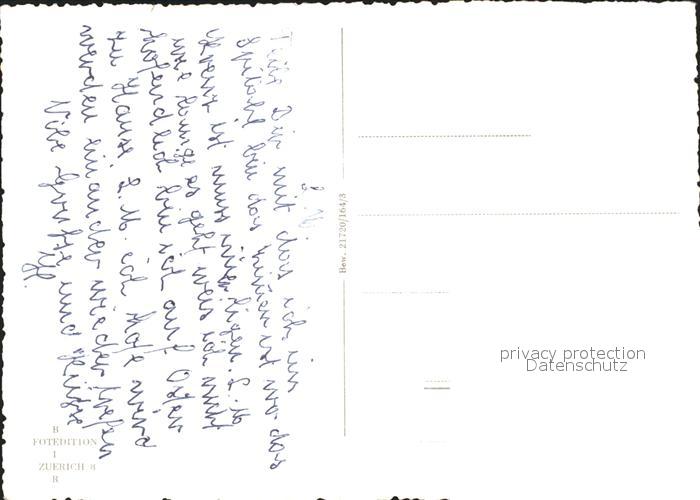 L. M.
Teile Dir mit das ich im
Spital bin das Knien ist wo das
Kreuz ist muss nur ligen. L. M
wie lange es geht weis ich nicht
hofendlich bin ich auf Osten
zu Hause L. M. ich hofe wird
werden einander wieder trefen
Viele Grüsse und Küsse
Bew. 21720/164/3
B
FOTEDITION
I
ZUERICH 8
R
privacy protection
Datenschutz